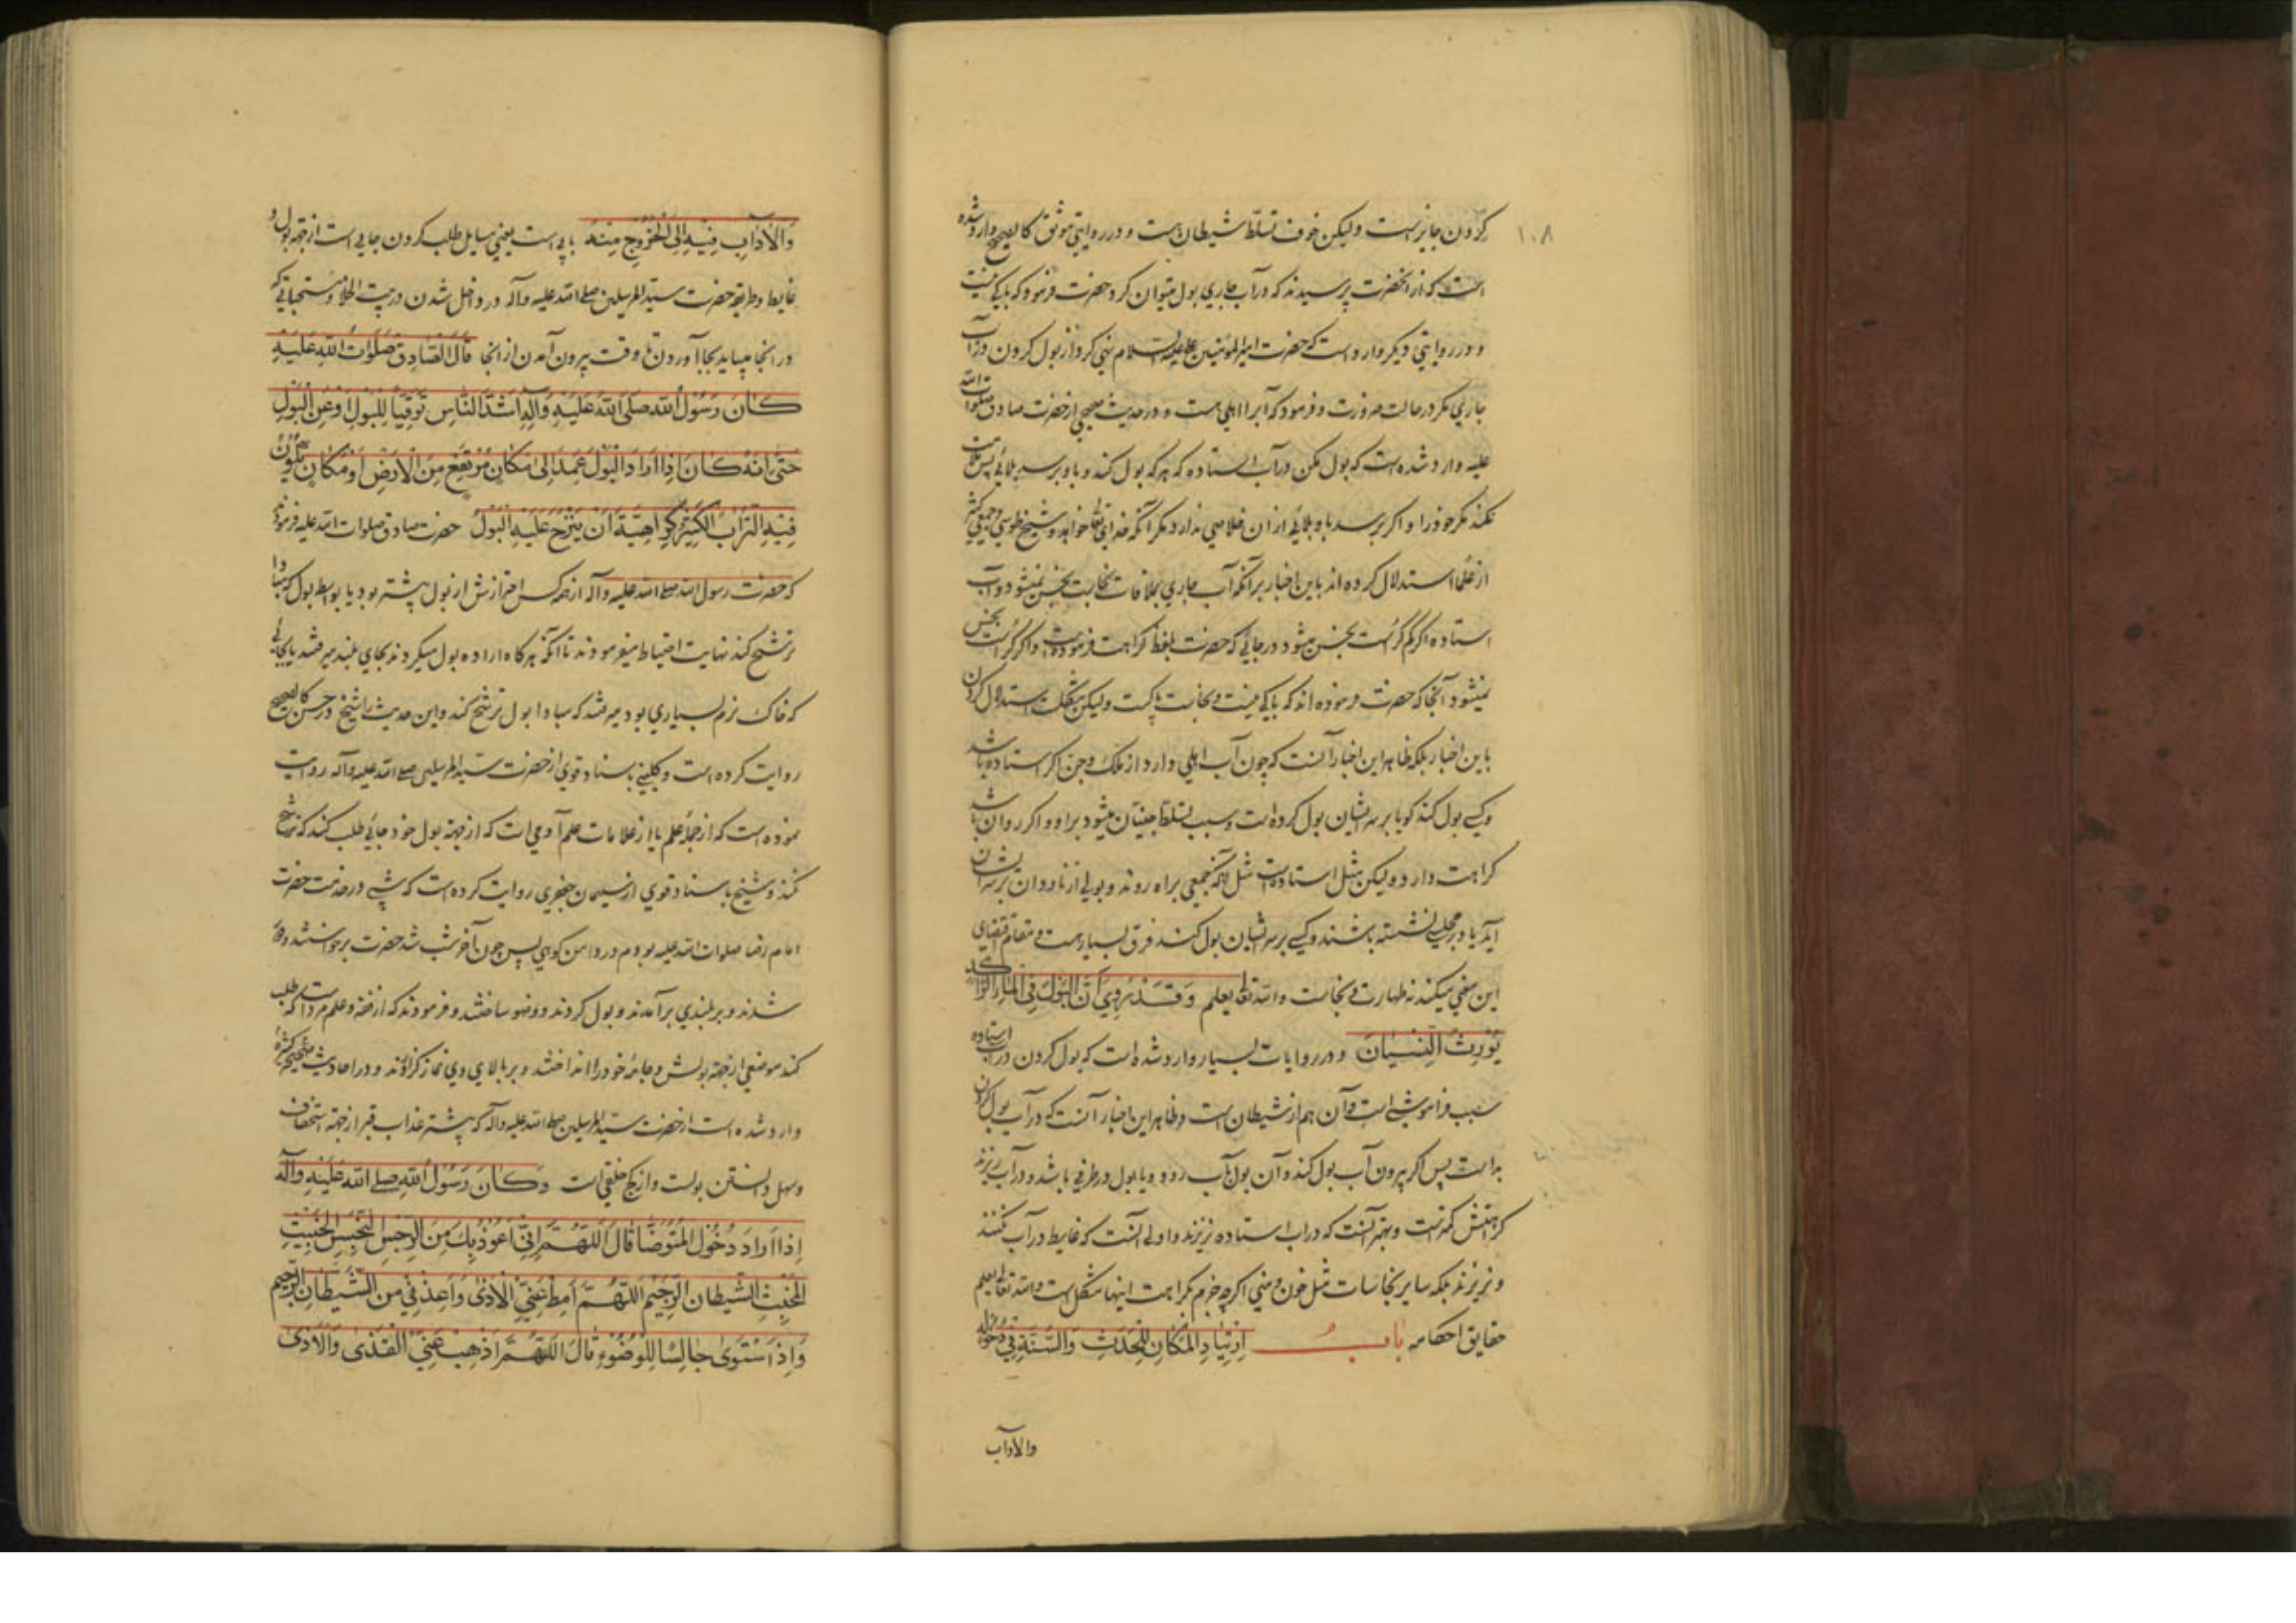 ۱۰۸
کردن جایز است ولیکن خوف تسلط شیطان هست و در روایتی موثق کالصحیح وارد شده
است که از انحضرت پرسیدند که در آب جاری بول میتوان کرد حضرت فرمود که باکی نیست
و در روایتی دیگر وارد است که حضرت امیر المؤمنین علیه السلام نهی کرد از بول کردن در آب
جاری مکر در حالت ضرورت و فرمود که آب را اهلی هست و در حدیث صحیح از حضرت صادق صلوات الله
علیه وارد شده است که بول مکن در آب استاده که هر که بول کند و باو برسد بلائی پس ملامت
نکند مکر خود را و اکر برسد باو بلائی از ان خلاصی ندارد مکر آنکه خدای تعالی خواهد و شیخ طوسی و جمعی کثیر
از علما استدلال کرده اند باین اخبار برآنکه آب جاری بملاقات نجاست نجس نمیشود و آب
استاده اکر کم کر است نجس میشود در جائی که حضرت بلفظ کراهت فرموده است و اکر کر است نجس
نمیشود آنجا که حضرت فرموده اند که باکی نیست و نجاست پاکست ولیکن مشکلست استدلال کردن
باین اخبار بلکه ظاهر این اخبار آنست که چون آب اهلی دارد از ملک و جن اکر استاده باشد
و کسی بول کند کویا بر سر ایشان بول کرده است و سبب تسلط جنیان میشود بر او و اکر روان باشد
کراهت دارد ولیکن مثل استاده نیست مثل آنکه جمعی براه روند و بولی از ناودان بر سر ایشان
آید یا در مجلسی نشسته باشند و کسی بر سر ایشان بول کند فرق بسیار هست و مقام اقتضای
این معنی میکند نه طهارت و نجاست والله تعالی یعلم وَقَدْ رُوِیَ أَنَّ الْبَوْلَ فِی الْمَاءِ الرَّاکِدِ
یُورِثُ النِّسْیَانَ و در روایات بسیار وارد شده است که بول کردن در آب استاده
سبب فراموشی است و آن هم از شیطان است و ظاهر این اخبار آنست که در آب بول کردن
بد است پس اکر بیرون آب بول کند و آن بول بآب رود و یا بول در ظرفی باشد و در آب ریزند
کراهتش کمتر است و بهتر آنست که در اب استاده نریزند و اولی آنست که غایط در آب نکنند
و نریزند بلکه سایر نجاسات مثل خون و منی اکرچه جزم بکراهت اینها مشکل است والله تعالی یعلم
حقایق احکامه بَابُ اِرْتِیَادِ الْمَکَانِ لِلْحَدَثِ وَالسُّنَّةِ فِی دُخُولِهِ
والآداب
وَالْآدَابِ فِیهِ إِلَی الْخُرُوجِ مِنْهُ بابی است یعنی مسایل طلب کردن جایی است از جهة بول و
غایط و طریقه حضرت سید المرسلین صلی الله علیه وآله در داخل شدن در بیت الخلا و مستحباتی که
در انجا میباید بجا آوردن تا وقت بیرون آمدن از انجا قَالَ الصَّادِقُ صَلَوَاتُ اللهِ عَلَیْهِ
کَانَ رَسُولُ اللهِ صَلَّی اللهُ عَلَیْهِ وَآلِهِ أَشَدَّ النَّاسِ تَوَقِّیاً لِلْبَوْلِ أَوْ عَنِ الْبَوْلِ
حَتَّی إِنَّهُ کَانَ إِذَا أَرَادَ الْبَوْلَ عَمَدَ إِلَی مَکَانٍ مُرْتَفِعٍ مِنَ الْأَرْضِ أَوْ مَکَانٍ یَکُونُ
فِیهِ التُّرَابُ الْکَثِیرُ کَرَاهِیَّةَ أَنْ یَنْضَحَ عَلَیْهِ الْبَوْلُ حضرت صادق صلوات الله علیه فرمودند
که حضرت رسول الله صلی الله علیه وآله از همه کس احترازش از بول بیشتر بود یا بواسطه بول که مبادا
ترشح کند نهایت احتیاط میفرمودند تا آنکه هرکاه اراده بول میکردند بجای بلند میرفتند یا بجائی
که خاک نرم بسیاری بود میرفتند که مبادا بول ترشح کند و این حدیث را شیخ در حسن کالصحیح
روایت کرده است و کلینی باسناد قوی از حضرت سید المرسلین صلی الله علیه وآله روایت
نموده است که از جمله علم یا از علامات علم آدمی است که از جهة بول خود جائی طلب کند که ترشح
نکند و شیخ باسناد قوی از سلیمان جعفری روایت کرده است که شبی در خدمت حضرت
امام رضا صلوات الله علیه بودم در دامن کوهی پس چون آخر شب شد حضرت برخواستند و دور
شدند و بر بلندی برآمدند و بول کردند و وضو ساختند و فرمودند که از فقه و علم مرد است که طلب
کند موضعی از جهة بولش و جامه خود را انداختند و بر بالای وی نماز کزاردند و در احادیث صحیحه کثیره
وارد شده است از حضرت سید المرسلین صلی الله علیه وآله که بیشتر عذاب قبر از جهة استخفاف
و سهل دانستن بولست و از کج خلقی است وَکَانَ رَسُولُ اللهِ صلی الله عَلَیْهِ وَآلِهِ
إِذَا أَرَادَ دُخُولَ الْمُتَوَضَّأِ قَالَ اللَّهُمَّ إِنِّی أَعُوذُ بِکَ مِنَ الرِّجْسِ النَّجِسِ الْخَبِیثِ
الْمُخْبِثِ الشَّیْطَانِ الرَّجِیمِ اللَّهُمَّ أَمِطْ عَنِّی الْأَذَی وَأَعِذْنِی مِنَ الشَّیْطَانِ الرَّجِیمِ
وَإِذَا اسْتَوَی جَالِسًا لِلْوُضُوءِ قَالَ اللَّهُمَّ أَذْهِبْ عَنِّی الْقَذَی وَالْأَذَی